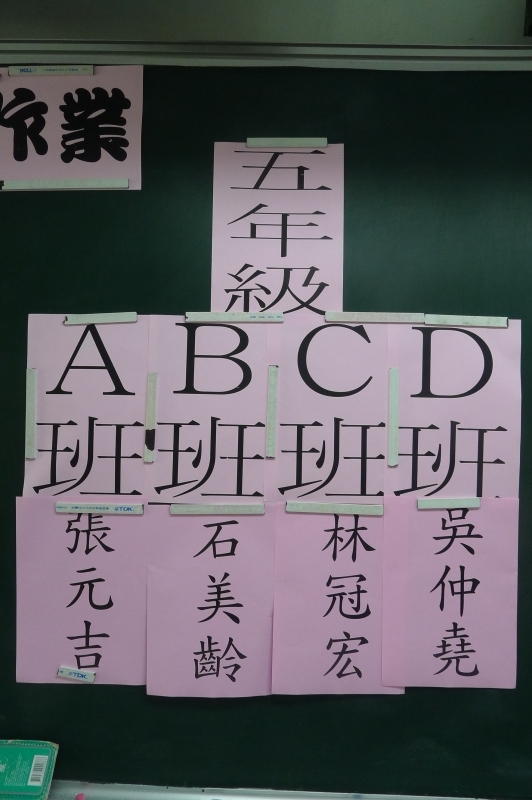 作業
五年級
A班
B班
C班
D班
張元吉
石美齡
林冠宏
吳仲堯
TDK
TDK